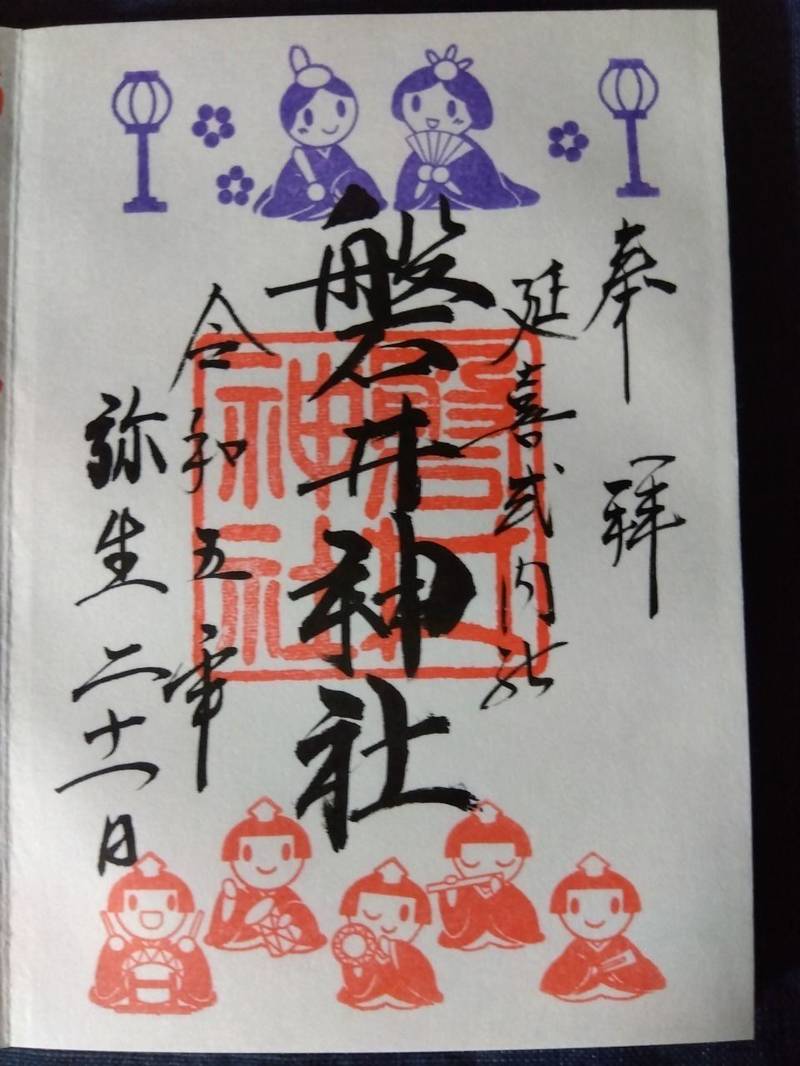 奉拝
延喜式内社
磐井神社
令和五年
弥生二十一日
磐井
神社